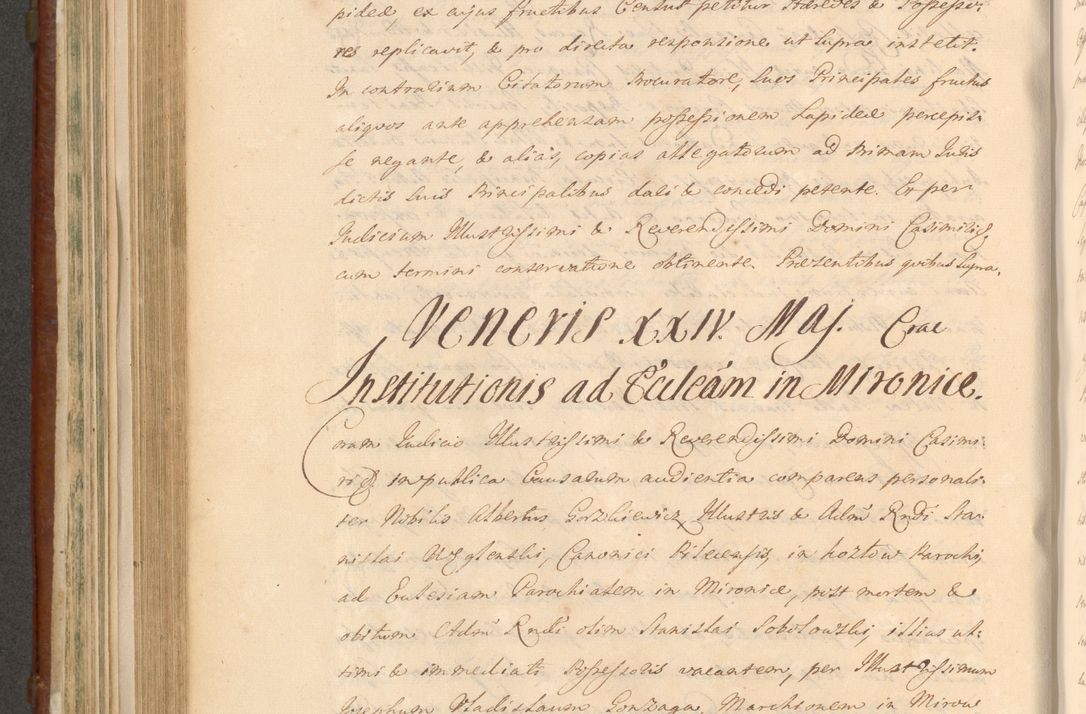 pideæ ex cujus fructibus Census petitur Hæredes & Possesso-
res replicavit, & pro directa responsione ut supra institit.
In contrarium Citatorum Procuratore, suos Principales fructus
aliquos ante apprehensam possessionem Lapideæ percepis-
se negante, & alias copias allegatorum ad Primam Juris
dictis suis Principalibus dari & concedi petente. Et per
Judicium Illustrissimi & Reverendissimi Domini Casimiri
cum termini conservatione obtinente. Præsentibus quibus supra.
Veneris XXIV. Maj. Crac
Institutionis ad Eccleam in Mironice.
Coram Judicio Illustrissimi & Reverendissimi Domini Casimi-
ri in publica Causarum audientia comparens personali-
ter Nobilis Albertus Gorzkiewicz Illustris & Adm Rndi Sta-
nislai Węglenski, Canonici Pilecensis, in Kozłow Parochi,
ad Eclesiam Parochialem in Mironice, post mortem &
obitum Adm Rndi olim Stanislai Sobolowski, illius ul-
timi & immediati Possessoris vacantem, per Illustrissimum
Josephum Vladislaum Gonzaga, Marchionem in Mirow